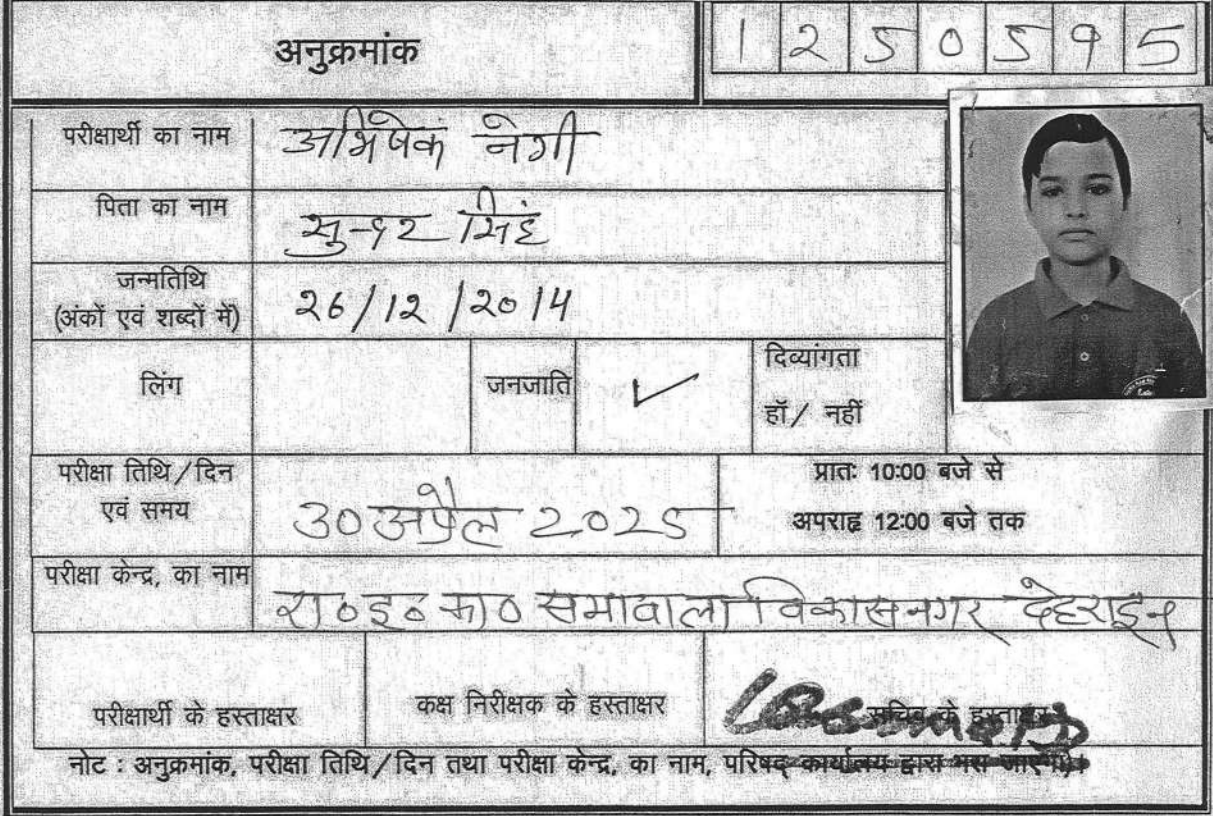 अनुक्रमांक 1250595
परीक्षार्थी का नाम अभिषेक नेगी
पिता का नाम सुन्दर सिंह
जन्मतिथि
(अंकों एवं शब्दों में) 26/12/2014
लिंग जनजाति ✓ दिव्यांगता
हॉ/ नहीं
परीक्षा तिथि/दिन
एवं समय 30 अप्रैल 2025
प्रातः 10:00 बजे से
अपराह्न 12:00 बजे तक
परीक्षा केन्द्र, का नाम रा०इ०का० सभावाला विकासनगर देहरादून
परीक्षार्थी के हस्ताक्षर कक्ष निरीक्षक के हस्ताक्षर सचिव के हस्ताक्षर
नोट : अनुक्रमांक, परीक्षा तिथि/दिन तथा परीक्षा केन्द्र, का नाम, परिषद् कार्यालय द्वारा भरा जाएगा।